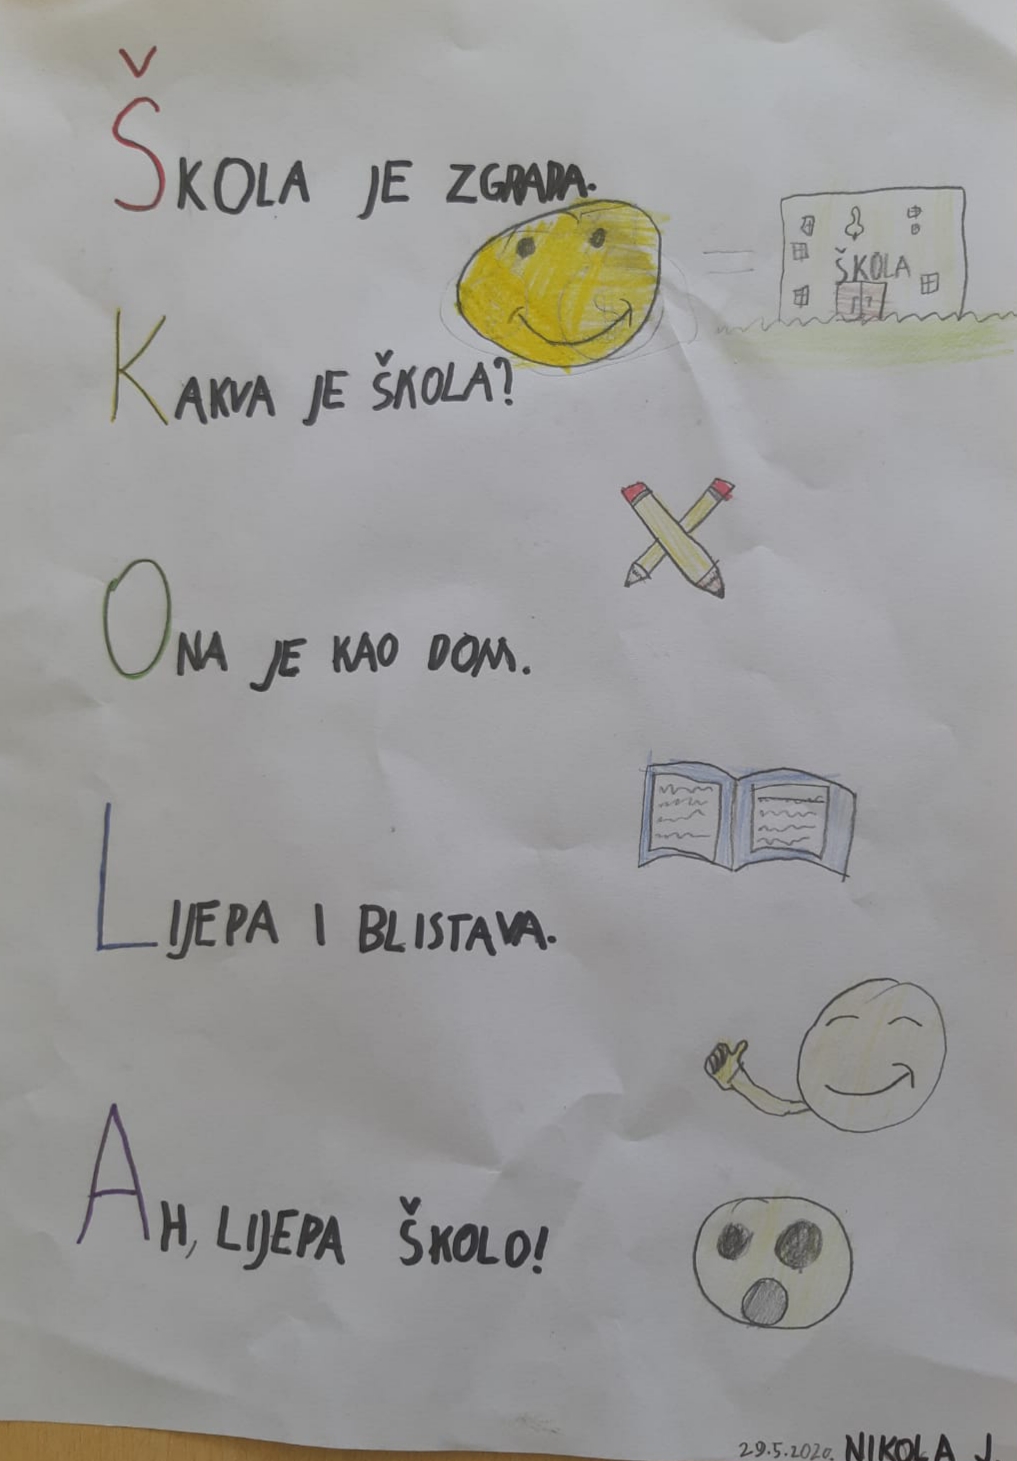 ŠKOLA JE ZGRADA.
ŠKOLA
KAKVA JE ŠKOLA?
ONA JE KAO DOM.
LIJEPA I BLISTAVA.
AH, LIJEPA ŠKOLO!
29.5.2020. NIKOLA J.